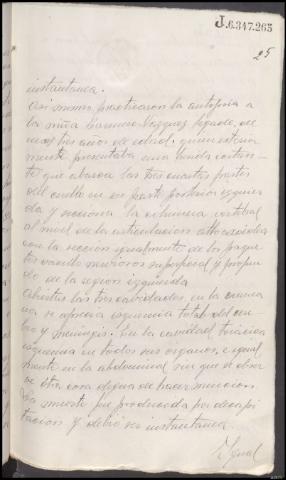 J.6.347.265
25
instantanea.
Asi mismo practicaron la autopsia a
la niña Carmen Vazquez Segade, de
unos tres años de edad, quien exterior
mente presentaba una herida cortan-
te que abarca las tres cuartas partes
del cuello en su parte posterior izquier
da y secciona la columna vertebral
al nivel de la articulacion atloaxoidea
con la sección igualmente de los paque
tes vasculo nerviosos superficial y profun
do de la region izquierda
Abiertas las tres cavidades, en la cranea
na se aprecia isquemia total del cere
bro y meninges. En la cavidad toracica
isquemia en todos sus organos, e igual
mente en la abdominal sin que se observe
otra cosa digna de hacer mencion.
La muerte fue producida por decapi
tacion y debio ser instantanea.
Igual